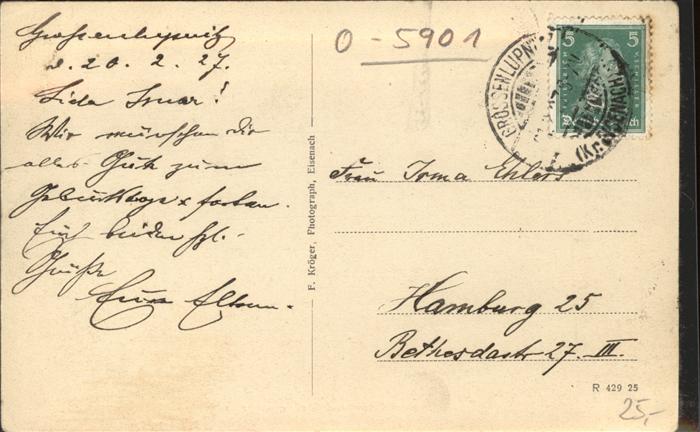 Grossenlupnitz
d. 20. 2. 27.
Liebe Irma!
Wir wünschen Dir
alles Gute zum
Geburtstage &
Euch beiden hzl.
Grüße
Eure Eltern.
F. Kröger, Photograph, Eisenach
O-5901
5 5
GROSSENLUPNITZ
(Kr. EISENACH)
Frau Irma Ehlers
Hamburg 25
Bethesdastr 27. III.
R 429 25
25,-